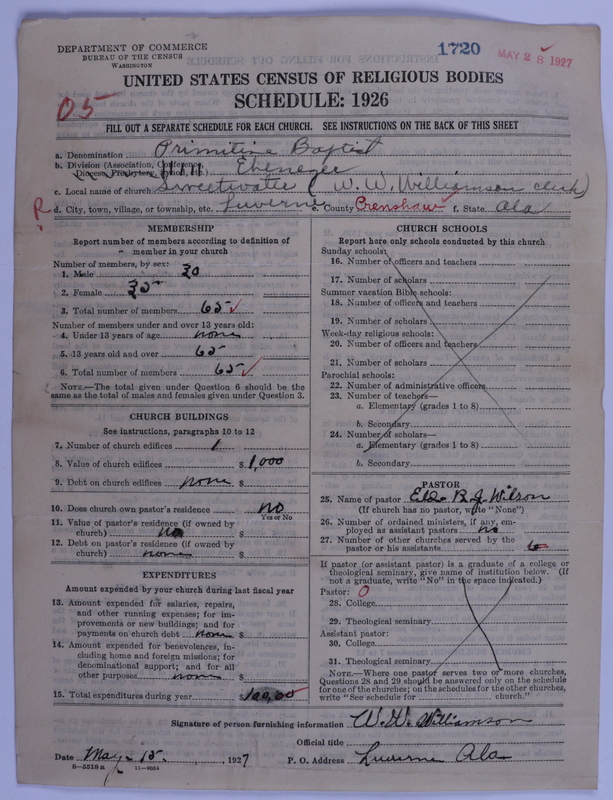 DEPARTMENT OF COMMERCE
BUREAU OF THE CENSUS
WASHINGTON
1720
MAY 28 1927
UNITED STATES CENSUS OF RELIGIOUS BODIES
SCHEDULE: 1926
05
FILL OUT A SEPARATE SCHEDULE FOR EACH CHURCH. SEE INSTRUCTIONS ON THE BACK OF THIS SHEET
a. Denomination Primitive Baptist
b. Division (Association, Conference, Diocese, Presbytery, Synod, etc.) Ebenezer
c. Local name of church Sweetwater (W. W. Williamson clerk)
R d. City, town, village, or township, etc. Luverne e. County Crenshaw f. State Ala
MEMBERSHIP
Report number of members according to definition of
" member in your church
Number of members, by sex:
1. Male 30
2. Female 35
3. Total number of members 65
Number of members under and over 13 years old:
4. Under 13 years of age none
5. 13 years old and over 65
6. Total number of members 65
NOTE.—The total given under Question 6 should be
same as the total of males and females given under Question 3.
CHURCH BUILDINGS
See instructions, paragraphs 10 to 12
7. Number of church edifices 1
8. Value of church edifices $ 1,000
9. Debt on church edifices none $
10. Does church own pastor's residence no
Yes or No
11. Value of pastor's residence (if owned by
church) no $
12. Debt on pastor's residence (if owned by
church) none $
EXPENDITURES
Amount expended by your church during last fiscal year
13. Amount expended for salaries, repairs,
and other running expenses; for im-
provements or new buildings; and for
payments on church debt none $
14. Amount expended for benevolences, in-
cluding home and foreign missions; for
denominational support; and for all
other purposes none $
15. Total expenditures during year $100,00
CHURCH SCHOOLS
Report here only schools conducted by this church
Sunday schools:
16. Number of officers and teachers
17. Number of scholars
Summer vacation Bible schools:
18. Number of officers and teachers
19. Number of scholars
Week-day religious schools:
20. Number of officers and teachers
21. Number of scholars
Parochial schools:
22. Number of administrative officers
23. Number of teachers—
a. Elementary (grades 1 to 8)
b. Secondary
24. Number of scholars—
a. Elementary (grades 1 to 8)
b. Secondary
PASTOR
25. Name of pastor Eld. R. J. Wilson
(If church has no pastor, write "None")
26. Number of ordained ministers, if any, em-
ployed as assistant pastors no
27. Number of other churches served by the
pastor or his assistants 6
If pastor (or assistant pastor) is a graduate of a college or
theological seminary, give name of institution below. (If
not a graduate, write "No" in the space indicated.)
Pastor: 0
28. College
29. Theological seminary
Assistant pastor:
30. College
31. Theological seminary
NOTE.—Where one pastor serves two or more churches,
Questions 28 and 29 should be answered only on the schedule
for one of the churches; on the schedules for the other churches,
write "See schedule for church."
Signature of person furnishing information W. W. Williamson
Official title
Date May 15, 1927 P. O. Address Luverne Ala
8—5518a 11—9054